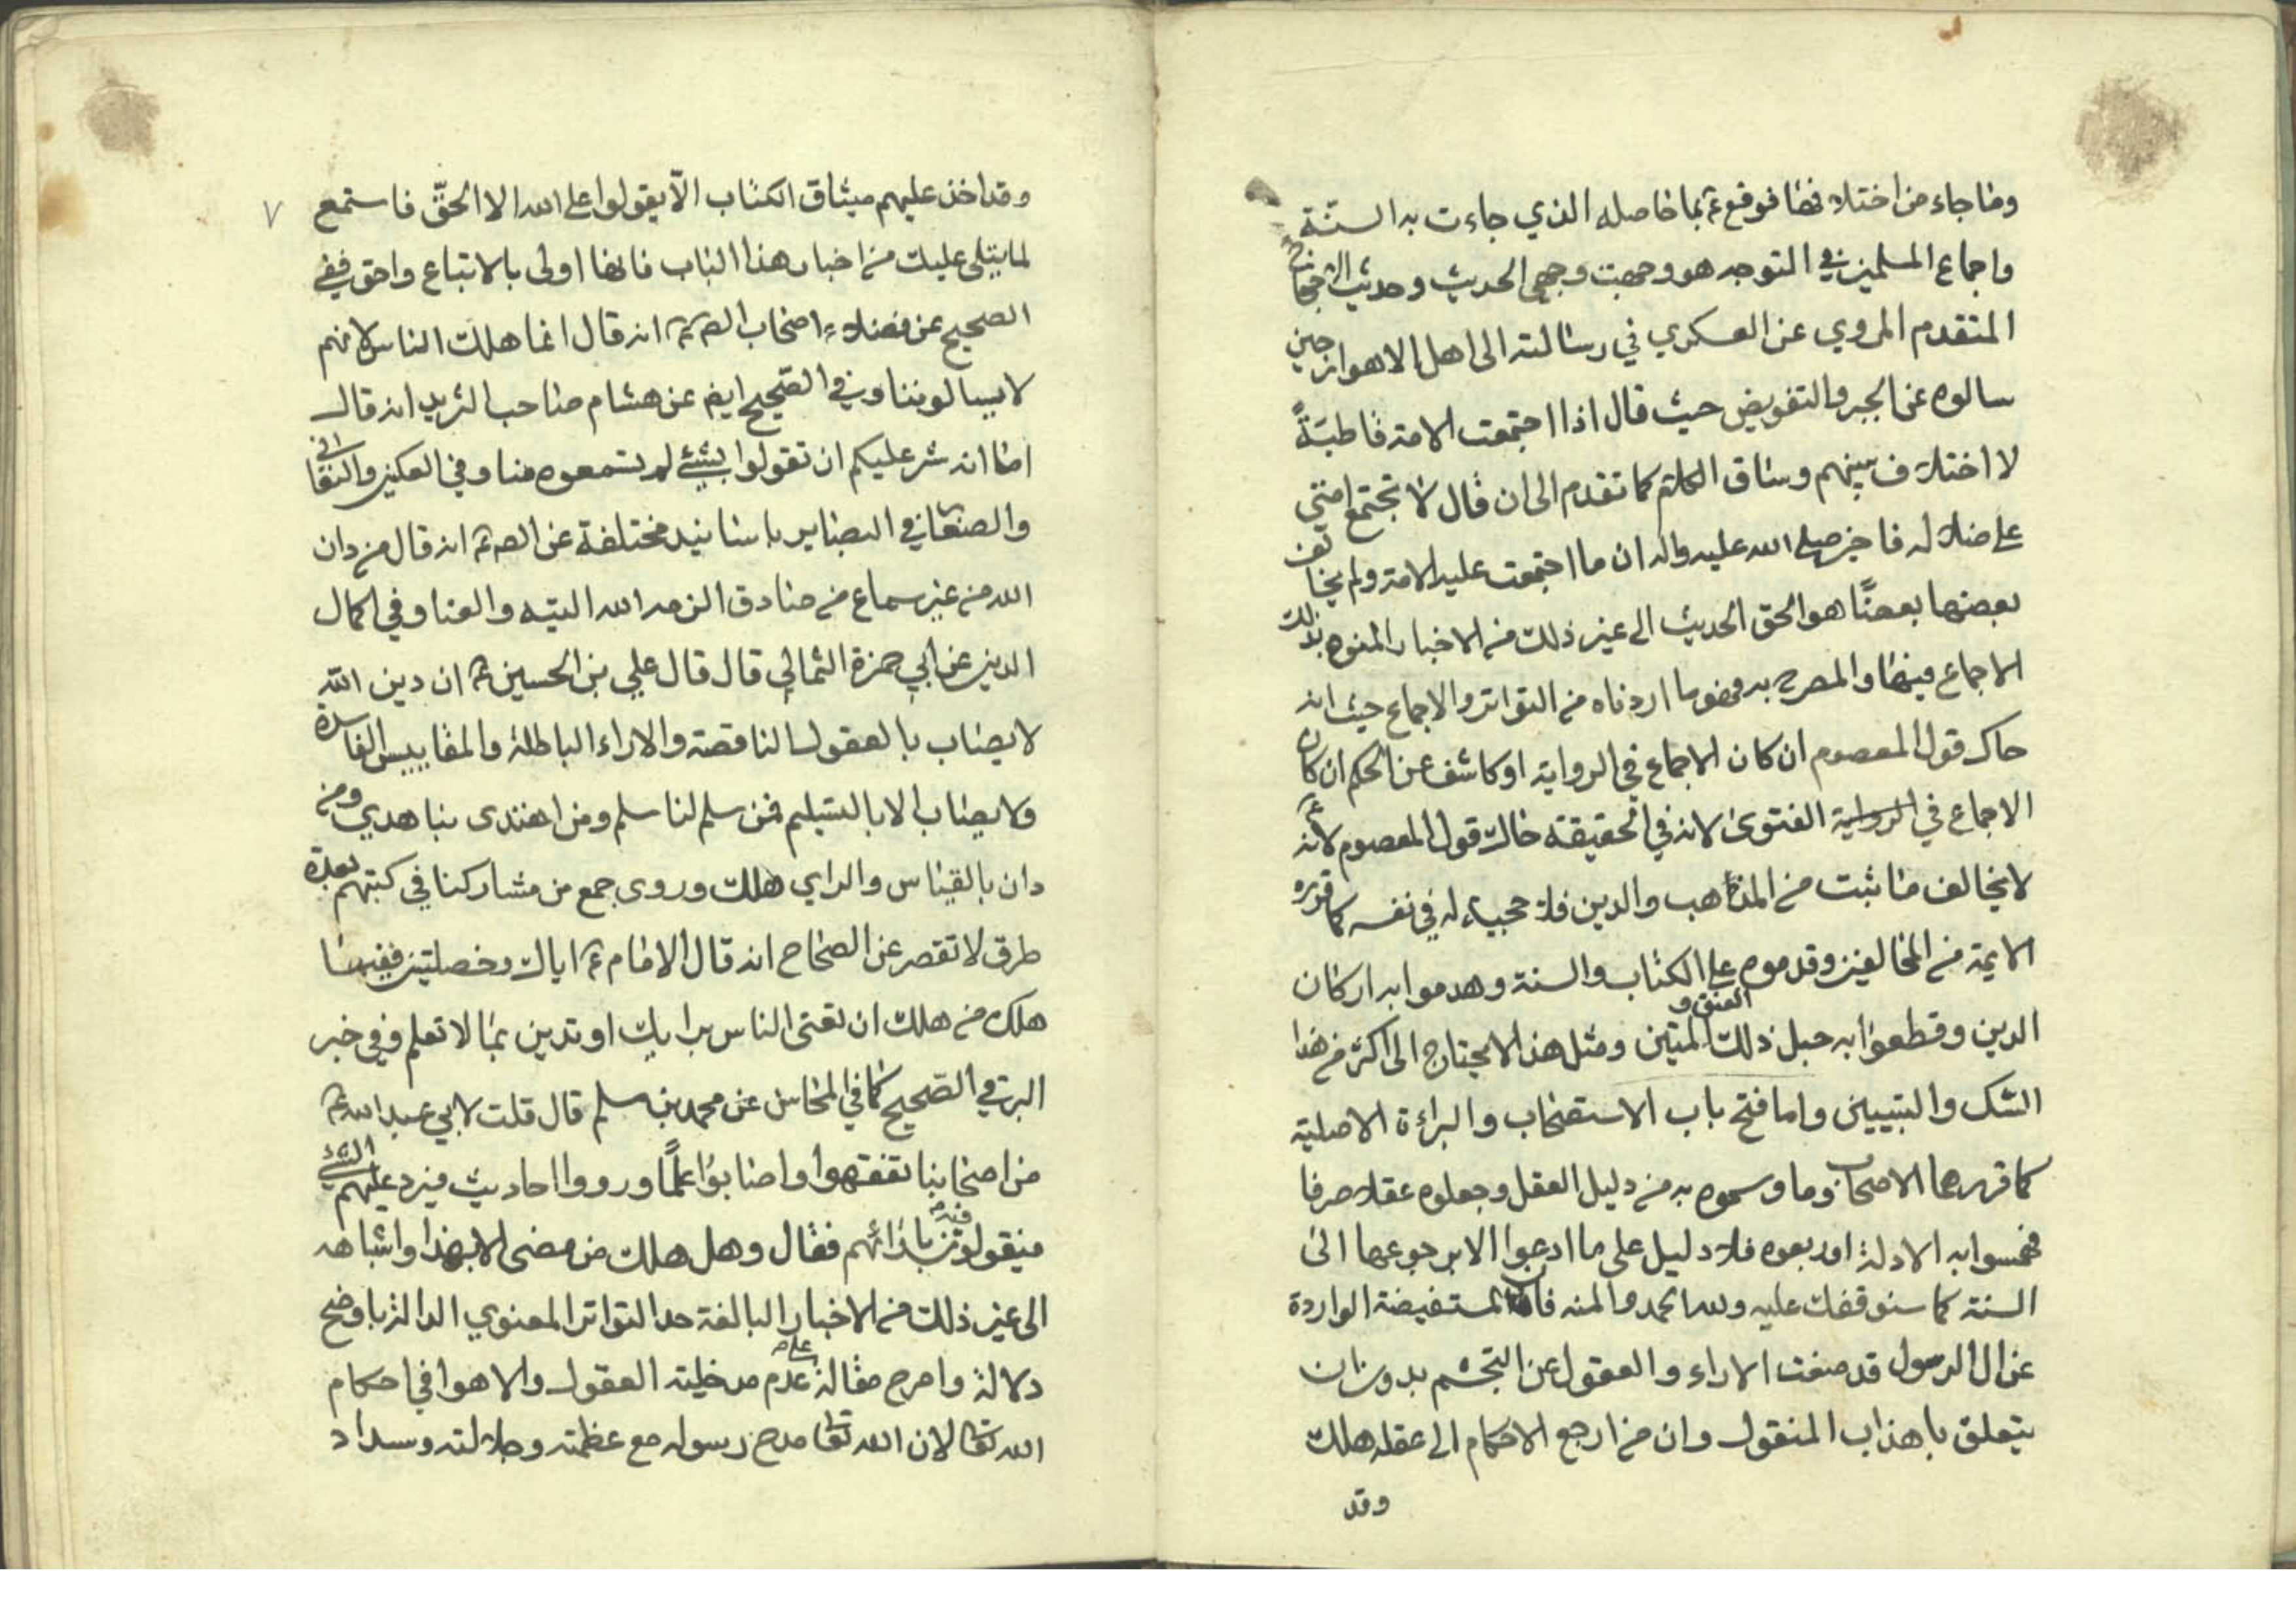 وما جاء من اختلافها فوقع ع بما حاصله الذي جاءت به السنة
واجماع المسلمين في التوجه هو وجهت وجهي الحديث وحديث الاحتجاج
المتقدم المروي عن العسكري في رسالته الى اهل الاهواز حين
سالوه عن الجبر والتفويض حيث قال اذا اجتمعت الامة قاطبةً
لا اختلاف بينهم وساق الكلام كما تقدم الى ان قال لا تجتمع امتي
على ضلالة فاخبر صلى الله عليه واله ان ما اجتمعت عليه الامة ولم يخالف
بعضها بعضًا هو الحق الحديث الى غير ذلك من الاخبار المنوه بذلك
الاجماع فيها والمصرح به وهو ما اردناه من التواتر والاجماع حيث انه
حاك قول المعصوم ان كان الاجماع في الرواية او كاشف عن الحكم ان كان
الاجماع في الرواية الفتوى لانه في الحقيقة حاك قول المعصوم لانه ع
لا يخالف ما ثبت من المذاهب والدين فلا حجية له في نفسه كما قرره
الايمة من المخالفين وقدموه على الكتاب والسنة وهدموا به اركان
الدين وقطعوا به حبل ذلك العنق و المتين ومثل هذا لا يحتاج الى اكثر من هذا
الشك والتبيين واما فتح باب الاستصحاب والبراءة الاصلية
كما قررهما الاصحاب وما وسموه به من دليل العقل وجعلوه عقلا صرفا
فخمسوا به الادلة او ربعوه فلا دليل على ما ادعوا الا برجوعهما الى
السنة كما سنوقفك عليه ولله الحمد والمنه فان المستفيضة الواردة
عن ال الرسول قد منعت الاراء والعقول عن التجشم بدون ان
يتعلق باهذاب المنقول وان من ارجع الاحكام الى عقله هلك
وقد
٧
وقد اخذ عليهم ميثاق الكتاب الّا يقولوا على الله الا الحقّ فاستمع
لما يتلى عليك من اخبار هذا الباب فانها اولى بالاتباع واحق ففي
الصحيح عن فضلاء اصحاب الص ع انه قال انما هلك الناس لانهم
لا يسالوننا وفي الصحيح ايض عن هشام صاحب البريد انه قال
اما انه شر عليكم ان تقولوا بشيئ لم تسمعوه منا وفي العكبري والنعماني
والصفار في البصاير باسانيد مختلفة عن الص ع انه قال من دان
الله من غير سماع من صادق الزمه الله التيه والعنا وفي اكمال
الدين عن ابي حمزة الثمالي قال قال علي بن الحسين ع ان دين الله
لا يصاب بالعقول الناقصة والاراء الباطلة والمقاييس الفاسدة
ولا يصاب الا بالتسليم فمن سلم لنا سلم ومن اهتدى بنا هدي ومن
دان بالقياس والراي هلك وروى جمع من مشاركنا في كتبهم بعدة
طرق لا تقصر عن الصحاح انه قال الامام ع اياك وخصلتين ففيهما
هلك من هلك ان تفتي الناس برايك او تدين بما لا تعلم وفي خبر
البرقي الصحيح كما في المحاسن عن محمد بن مسلم قال قلت لابي عبد الله ع
من اصحابنا تفقهوا واصابوا علمًا ورووا احاديث فيرد عليهم الشيئ
فيقولون فيه بارائهم فقال وهل هلك من مضى الا بهذا واشباهه
الى غير ذلك من الاخبار البالغة حد التواتر المعنوي الدالة باوضح
دلالة واصرح مقالة على عدم مدخلية العقول والاهوا في احكام
الله تعا لان الله تعا مدح رسوله مع عظمته وجلالته وسداد